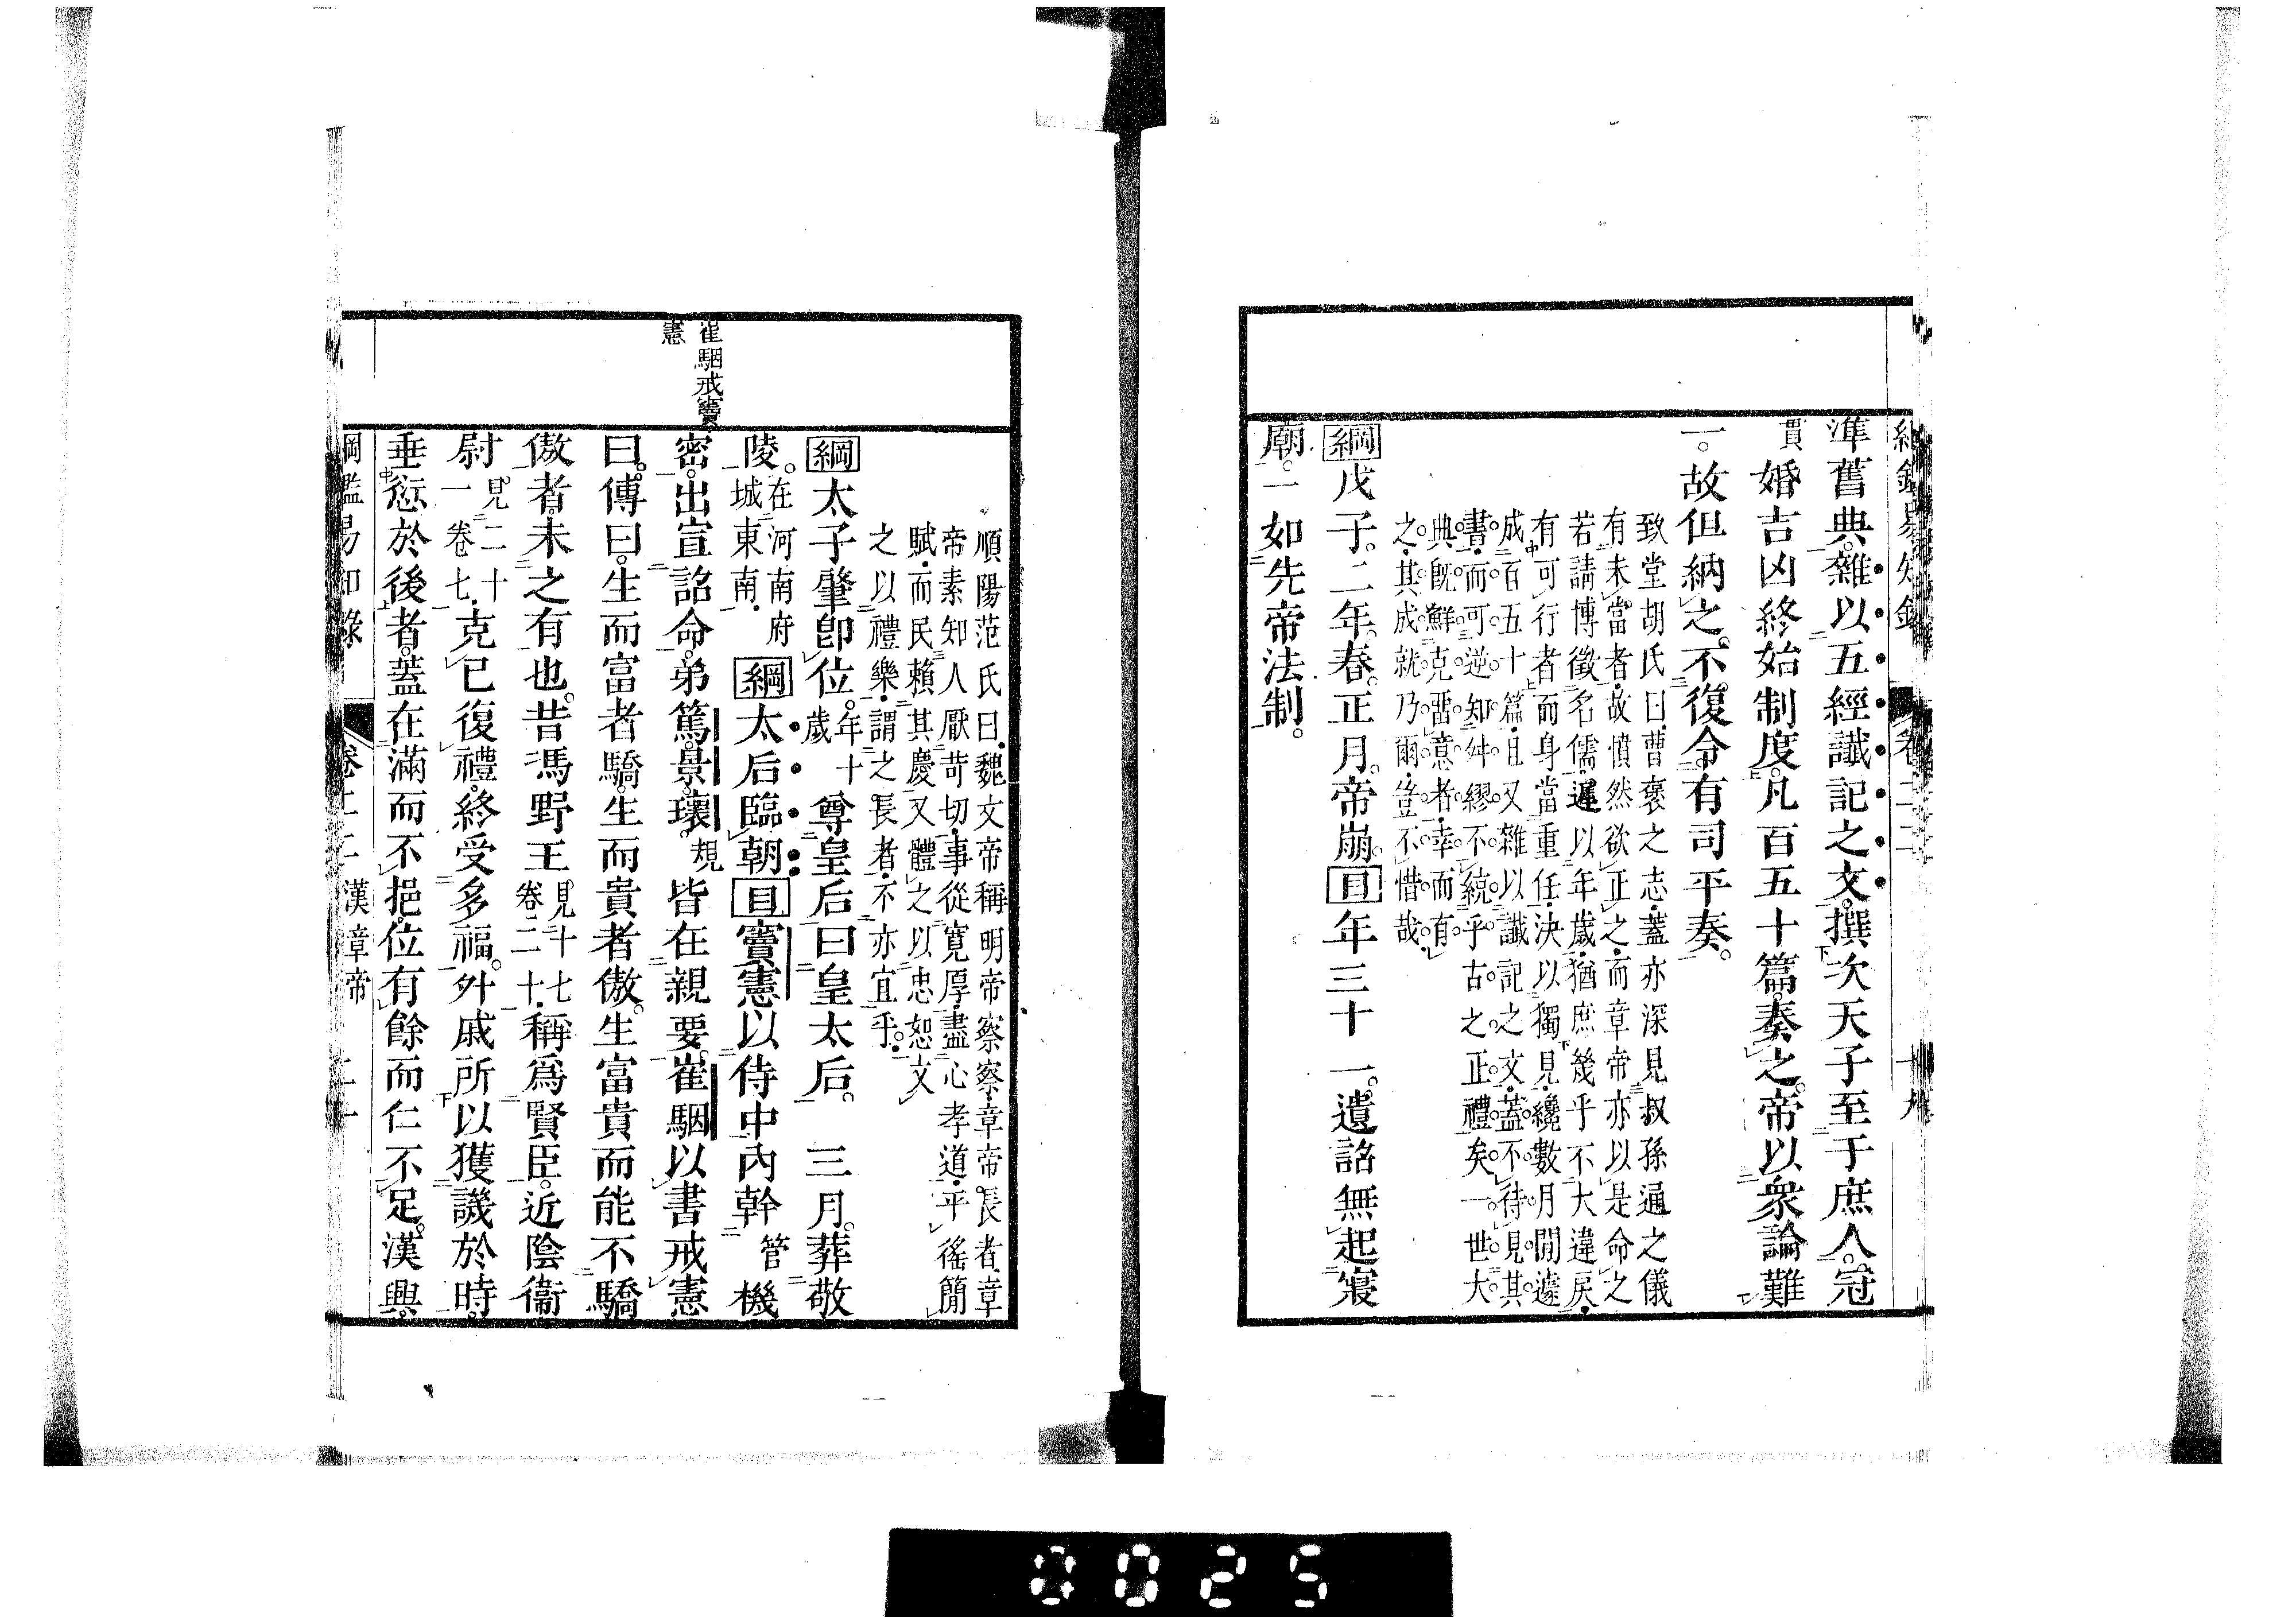 準舊典。雜以五經讖記之文。撰次天子至于庶人。冠
貫婚吉凶終始制度。凡百五十篇。奏之。帝以衆論難
一。故但納之。不復令有司平奏。
致堂胡氏曰。曹褒之志。蓋亦深見叔孫通之儀
有未當者。故憤然欲正之。而章帝亦以是命之
若請博徵名儒。遲以年歲。猶庶幾乎不大違戾。
有可行者。而身當重任。決以獨見。纔數月間。遽
成百五十篇。且又雜以讖記之文。蓋不待見其
書。而可逆知舛繆不綂乎古之正禮矣。一世大
典。旣鮮克畱意者。幸而有
之。其成就乃爾。豈不惜哉。
綱戊子。二年。春。正月。帝崩。目年三十一。遺詔無起寢
廟。一如先帝法制。
順陽范氏曰。魏文帝稱明帝察察。章帝長者。章
帝素知人厭苛切。事從寬厚。盡心孝道。平徭簡
賦。而民賴其慶。又體之以忠恕。文
之以禮樂。謂之長者。不亦宜乎。
綱太子肇卽位。年十歲尊皇后曰皇太后。三月。葬敬
陵。在河南府城東南。綱太后臨朝目竇憲以侍中內幹管機
崔駰戒竇
憲
密。出宣詔命。弟篤。景。瓌。規皆在親要。崔駰以書戒憲
曰。傳曰。生而富者驕。生而貴者傲。生富貴而能不驕
傲者。未之有也。昔馮野王見十七卷二十。稱爲賢臣。近陰衞
尉見二十一卷七。克已復禮。終受多福。外戚所以獲譏於時。
垂愆於後者。蓋在滿而不挹。位有餘而仁不足。漢興。
綱鑑易知錄 卷二二 漢章帝 二十
0025